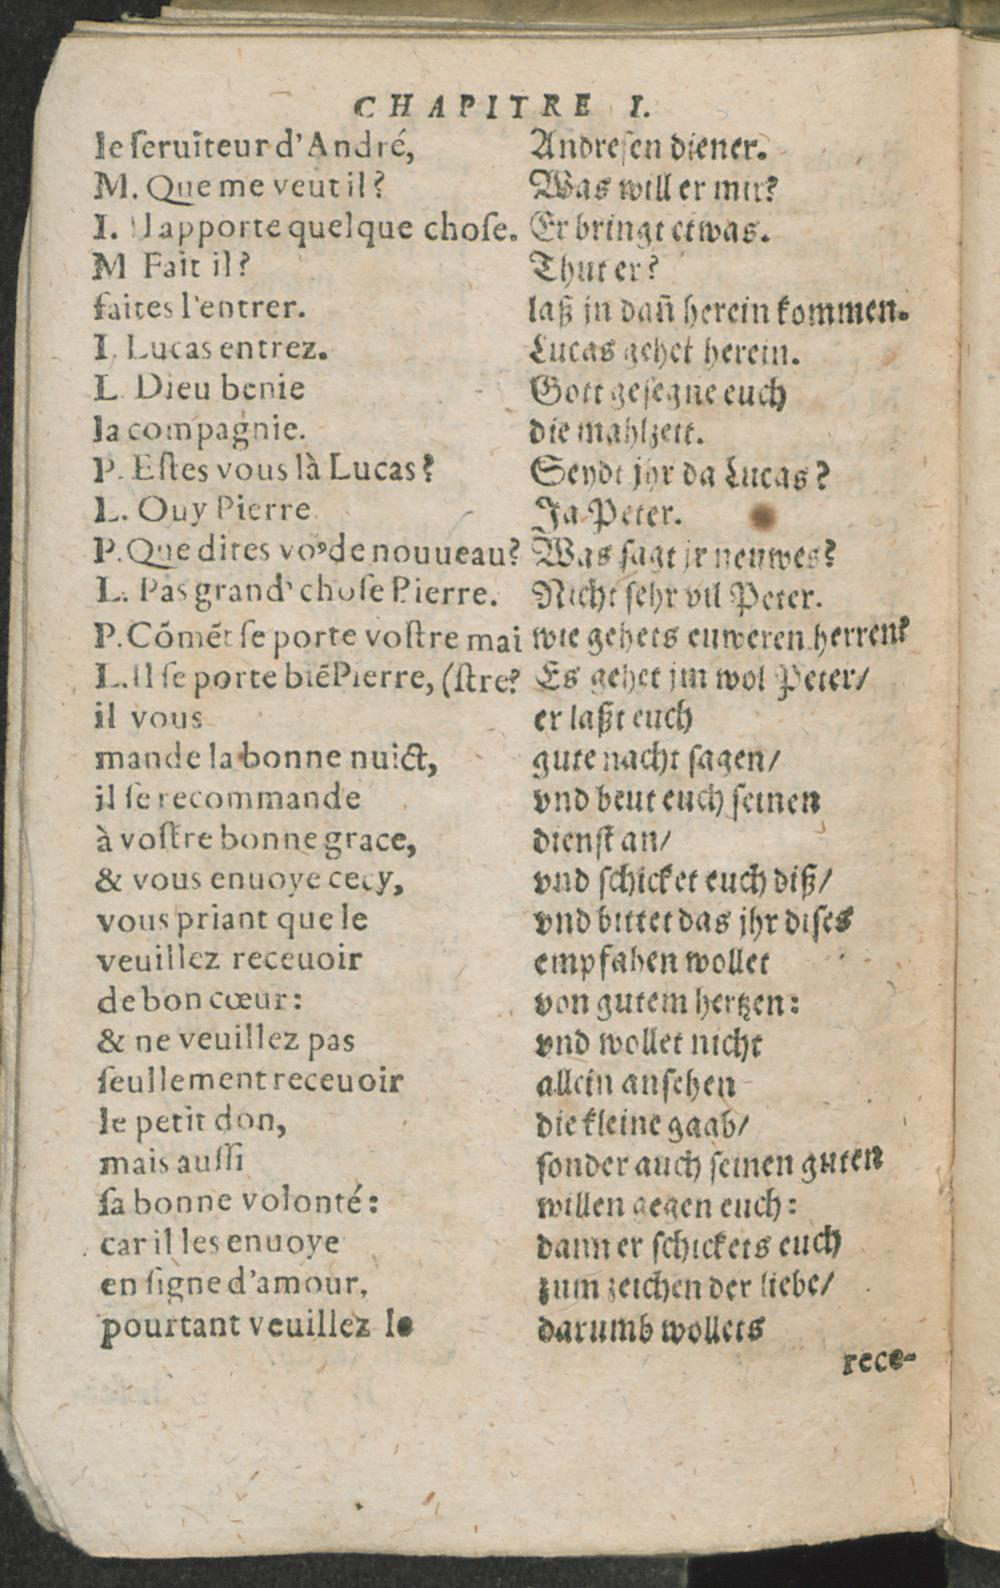 CHAPITRE I.
le ſeruiteur d'André,
M. Que me veut il?
I. Il apporte quelque choſe.
M Fait il?
faites l'entrer.
I. Lucas entrez.
L. Dieu benie
la compagnie.
P. Eſtes vous là Lucas?
L. Ouy Pierre
P. Que dites vo⁹ de nouueau?
L. Pas grand' choſe Pierre.
P. Cõmẽt ſe porte voſtre mai
L. Il ſe porte biẽ Pierre, (ſtre?
il vous
mande la bonne nuict,
il ſe recommande
à voſtre bonne grace,
& vous enuoye cecy,
vous priant que le
veuillez receuoir
de bon cœur:
& ne veuillez pas
ſeullement receuoir
le petit don,
mais auſſi
ſa bonne volonté:
car il les enuoye
en ſigne d'amour,
pourtant veuillez le
Andreſen diener.
Was will er mir?
Er bringt etwas.
Thut er?
laß jn dañ herein kommen.
Lucas gehet herein.
Gott geſegne euch
die mahlzeit.
Seydt jhr da Lucas?
Ja Peter.
Was ſagt jr neuwes?
Nicht ſehr vil Peter.
wie gehets euweren herren?
Es gehet jm wol Peter/
er laßt euch
gute nacht ſagen/
vnd beut euch ſeinen
dienſt an/
vnd ſchicket euch diß/
vnd bittet das jhr diſes
empfahen wollet
von gutem hertzen:
vnd wollet nicht
allein anſehen
die kleine gaab/
ſonder auch ſeinen guten
willen gegen euch:
dann er ſchickets euch
zum zeichen der liebe/
darumb wollets
rece-